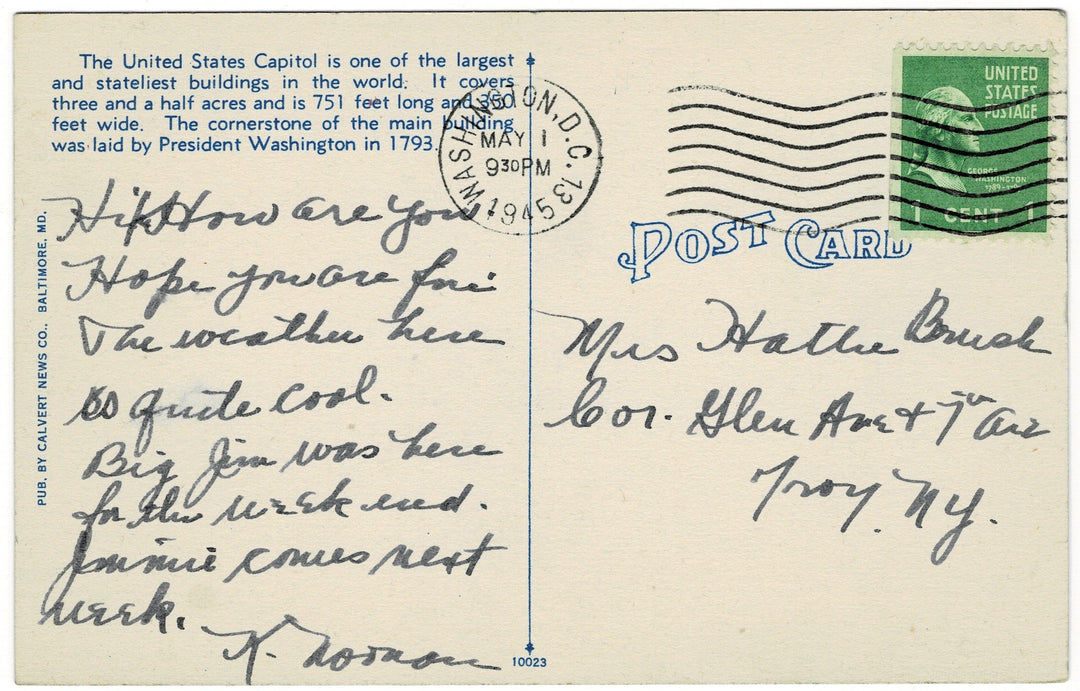 The United States Capitol is one of the largest
and stateliest buildings in the world. It covers
three and a half acres and is 751 feet long and 350
feet wide. The cornerstone of the main building
was laid by President Washington in 1793.
WASHINGTON, D.C. 13
MAY 1
9 30 PM
1945
UNITED
STATES
POSTAGE
GEORGE
WASHINGTON
1 CENT 1
POST CARD
PUB. BY CALVERT NEWS CO., BALTIMORE, MD.
Hi, How are you
Hope you are fine
The weather here
is quite cool.
Big Jim was here
for the week end.
Jimmie comes next
week.
K. Norman
Mrs Hattie Brush
Cor. Glen Ave & 7th Ave
Troy, NY.
10023